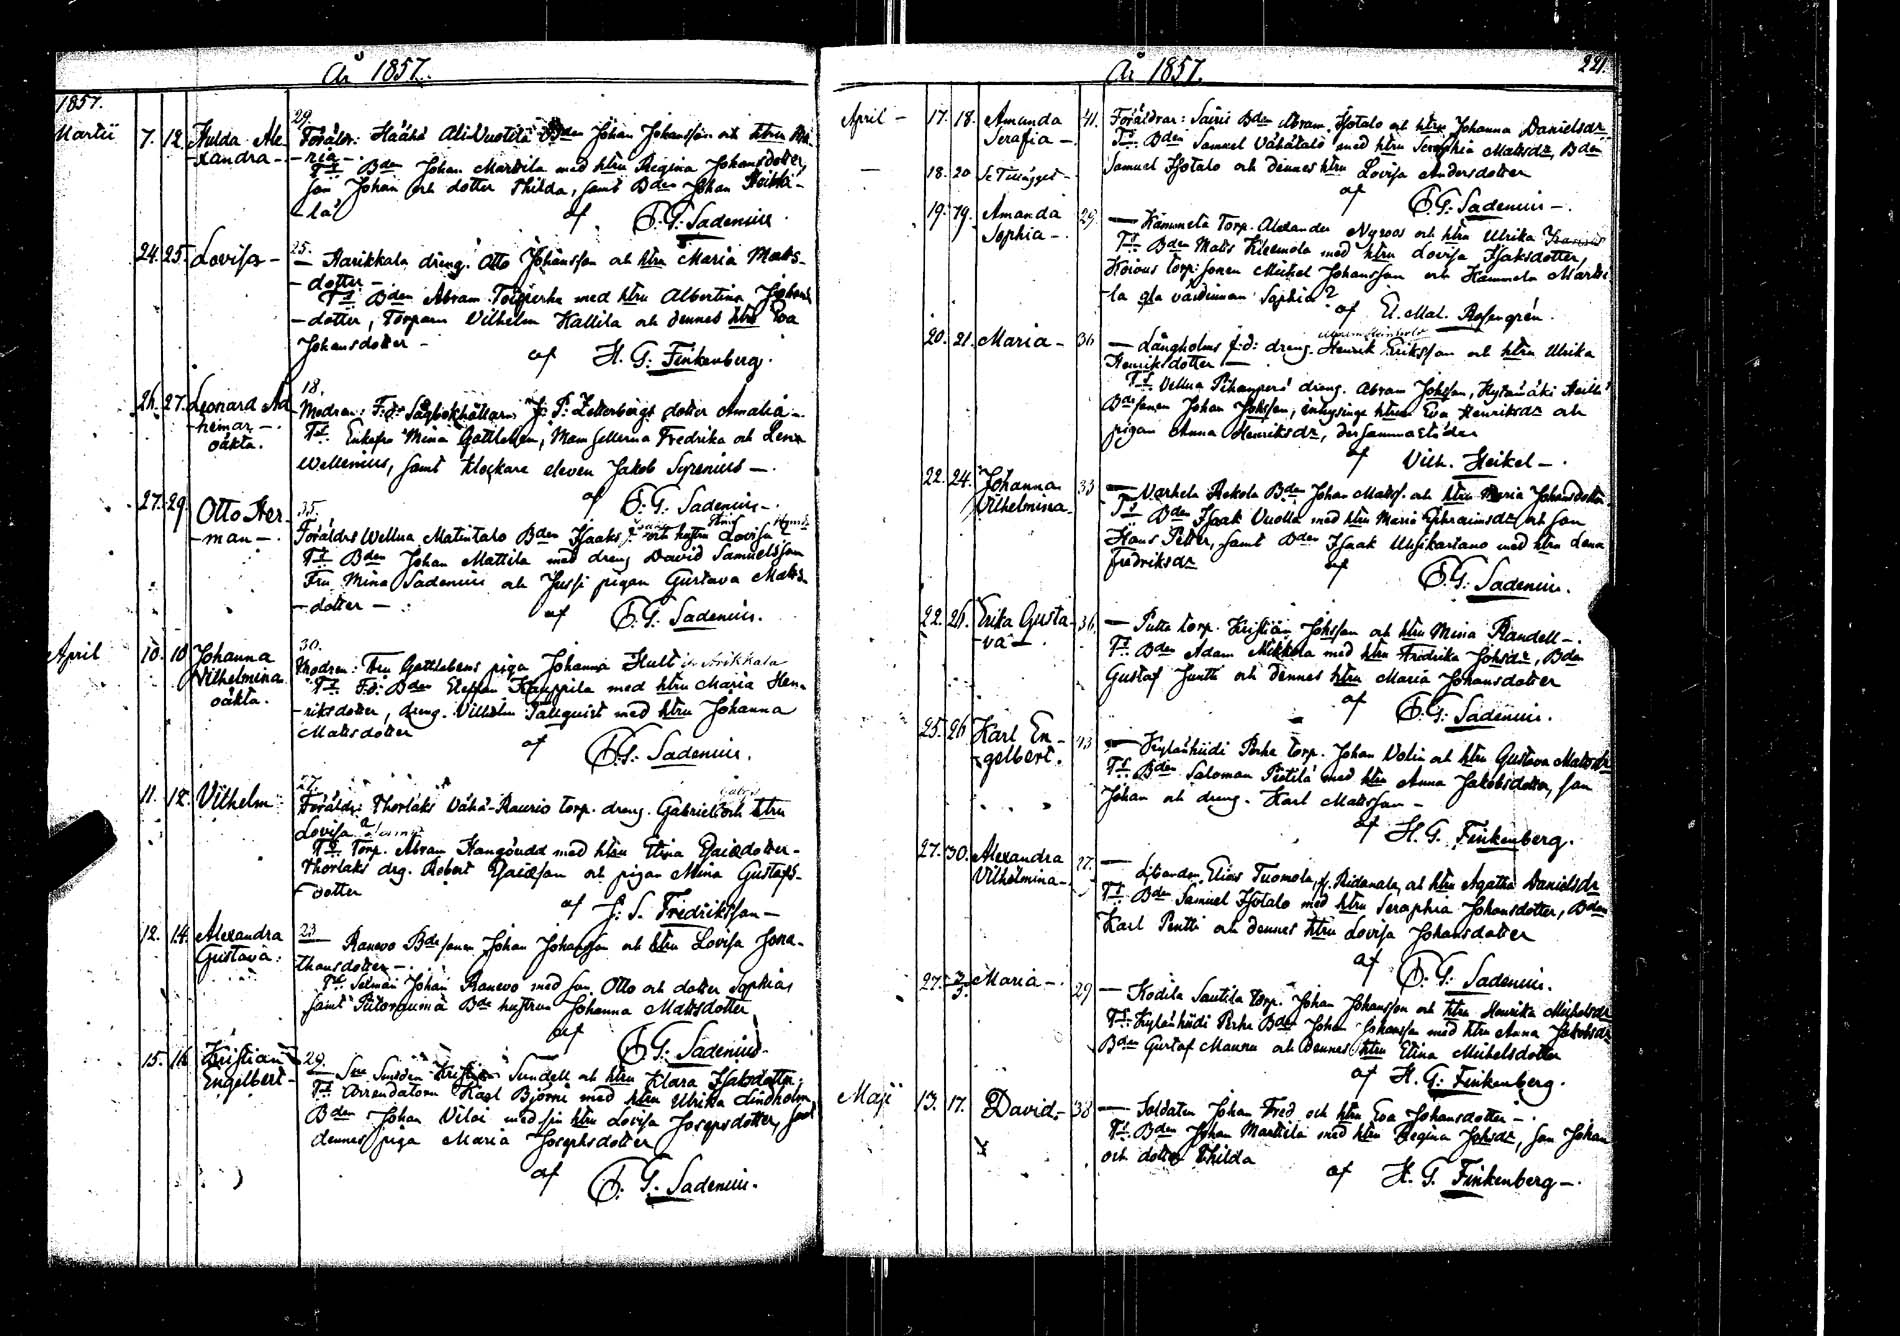 År 1857.
1857.
Martii 7. 12. Hulda Ale-
-xandra- 29.
Föräldr: Häähä Ali-Vuotila Bden Johan Johansson och htru Ma-
-ria-.
Ts Bden Johan Marttila med htru Regina Johansdotter,
son Johan och dotter Thilda, samt Bden Johan Heikki-
-lä
af F. G. Sadenius.
24. 25. Lovisa- 25.
— Harikkala dreng. Otto Johansson och htru Maria Matts-
-dotter-
Ts Bden Abram Toiperha med htru Albertina Johans-
-dotter, Torparn Vilhelm Kallila och dennes htru Eva
Johansdotter-
af H. G. Finkenberg.
26. 27. Leonard Ad
-hemar-.
oäkta. 18.
Modren: F:d: Sågbokhållarn J: P: Zetterbergs dotter Amalia-.
Ts Enkefru Mina Gottleben, Mamsellerna Fredrika och Lena
Wellenius, samt klockare eleven Jakob Syrenius-.
af F. G. Sadenius-.
27. 29. Otto Her-
-man-. 35.
Föräldrs Wellua Matintalo Bden Isaaks och hustru Lovisa
Ts Bden Johan Mattila med dreng David Samuelsson
Fru Mina Sadenius och Jussi pigan Gustava Matts-
-dotter-
af F. G. Sadenius.
April 10. 10 Johanna
Vilhelmina
oäkta. 30.
Modren: Fru Gottlebens piga Johanna Hult
Ts F.d: Bden Elephan Kauppila med htru Maria Hen-
-riksdotter, dreng. Vilhelm Tallquist med htru Johanna
Mattsdotter
af F. G. Sadenius.
11. 12. Vilhelm 27.
Föräldr: Thorlaks Vähä-Raurio torp. dreng. Gabriel och htru
Lovisa
Ts Torp. Abram Kangörudd med htru Stina
Thorlaks drg. Robert och pigan Mina Gustafs-
-dotter
af J: S. Fredriksson-
12. 14. Alexandra
Gustava. 23
— Ranevo Bdesonen Johan Johansson och htru Lovisa Jona-
thansdotter-.
Ts Selman Johan Ranevo med son Otto och dotter Sophia,
samt Bde hustrun Johanna Mattsdotter
af F. G. Sadenius-
15. 16. Kristian
Engelbert- 29.
— Kristian Sundell och htru Klara Isaksdotter.
Ts Arrendatorn Karl Björni med htru Ulrika Lindholm,
Bden Johan Vilai med sin htru Lovisa Josepsdotter, samt
dennes piga Maria Josephsdotter
af F. G. Sadenius.
År 1857. 221.
April- 17. 18. Amanda
Serafia-. 41.
Föräldrar: Sairis Bden Abram Isotalo och htru Johanna Danielsdr
Ts Bden Samuel Vähätalo med htru Seraphia Mattsdr, Bden
Samuel Isotalo och dennes htru Lovisa Andersdotter
af F. G. Sadenius-.
— 18. 20 Se Tillägget-
19. 19. Amanda
Sophia-. 29.
— Hammela torp. Alexander Nyroos och htru Ulrika
Ts Bden Matts Kleemola med htru Lovisa Isaksdotter,
Koivus torp: sonen Mickel Johansson och Hammela Martti-
-la gla värdinnan Sophia?
af El. Mat. Rosengrén.
20. 21. Maria- 36
— Långholms f:d: dreng. Henrik Eriksson och htru Ulrika
Henriksdotter-
Ts Vellua Pihanperä dreng. Abram Johsson, Hyrämäki Heikki
Bdesonen Johan Johsson, inhysinge htrun Eva Henriksdr och
pigan Anna Henriksdr, der sammastädes
af Vilh. Heikel-.
22. 24. Johanna
Vilhelmina- 33
— Varhela Rekola Bden Johan Mattss. och htru Maria Johansdotter
Ts Bden Isaak Vuolla med htru Maria Ephraimsdr och son
Hans Petter, samt Bden Isaak Uusikartano med htru Lena
Fredriksdr
af F. G. Sadenius.
22. 26. Erika Gusta-
-va- 36.
— Putta torp. Kristian Johsson och htru Mina Randell-.
Ts Bden Adam Mikkola med htru Fredrika Johsdr, Bden
Gustaf Juntti och dennes htru Maria Johansdotter
af F. G. Sadenius.
25. 26 Karl En-
-gelbert. 43
— Kyläniidi Perhe torp. Johan Volin och htru Gustava Mattsdr
Ts Bden Saloman Pietilä med htru Anna Jakobsdotter, son
Johan och dreng. Karl Mattsson-
af H. G. Finkenberg.
27. 30. Alexandra
Vilhelmina-. 27.
— Elias Tuomola, och htru Agatha Danielsdr
Ts Bden Samuel Isotalo med htru Seraphia Johansdotter, Bden
Karl Pentti och dennes htru Lovisa Johansdotter
af F. G. Sadenius.
27. 3/5. Maria-. 29
— Kodila Sautila torp. Johan Johansson och htru Henrika Michelsdr
Ts Kyläniidi Perhe Bden Johan Johansson med htru Anna Jakobsdr
Bden Gustaf Maunu och dennes htru Stina Michelsdotter
af H. G. Finkenberg.
Maji 13. 17. David- 38
— Soldaten Johan Fred och htru Eva Johansdotter-.
Ts Bden Johan Marttila med htru Regina Johsdr, son Johan
och dotter Thilda
af H. G. Finkenberg-.